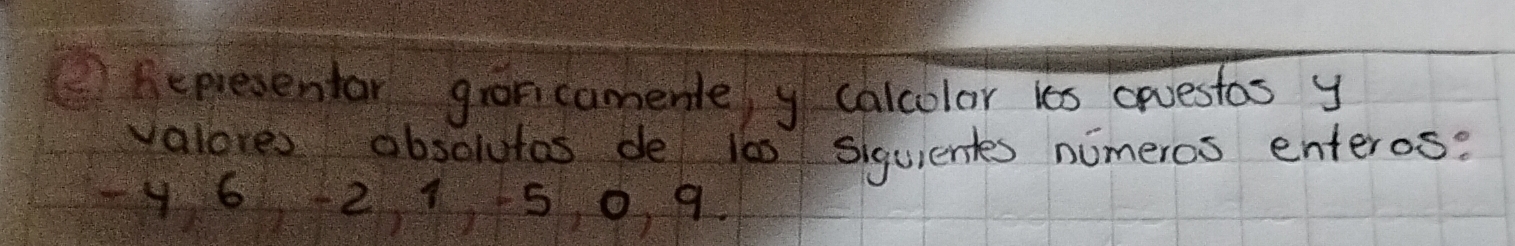 ② Representar gráficamente, y calcolar los opuestos y
valores absolutos de los siguientes números enteros:
-4, 6, -2, 1, -5, 0, 9.